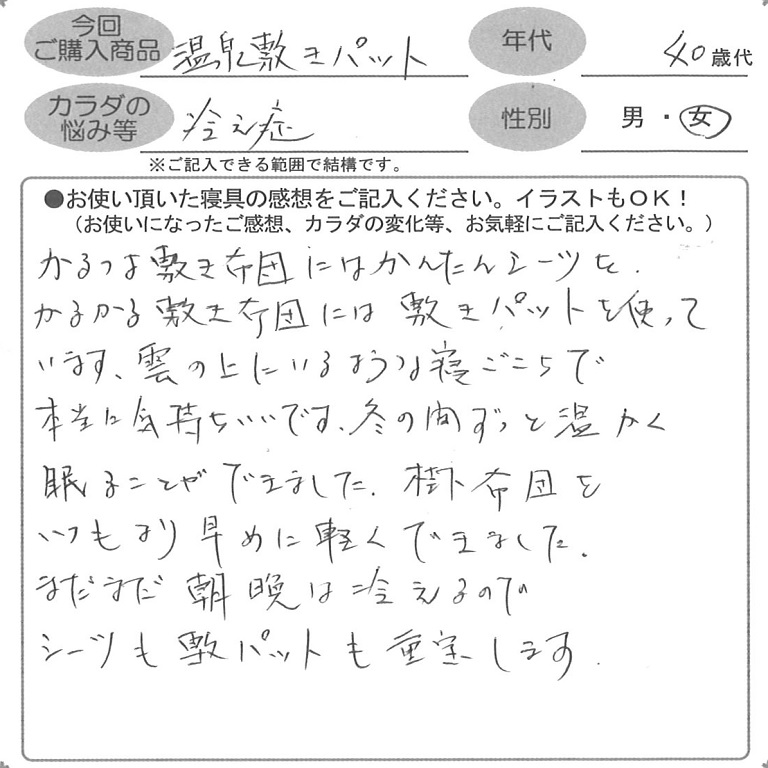 今回
ご購入商品
温泉敷きパット
年代
40歳代
カラダの
悩み等
冷え症
性別
男・女
※ご記入できる範囲で結構です。
●お使い頂いた寝具の感想をご記入ください。イラストもOK!
(お使いになったご感想、カラダの変化等、お気軽にご記入ください。)
かるつよ敷き布団にはかんたんシーツを、
かるかる敷き布団には敷きパットを使って
います、雲の上にいるような寝ごこちで
本当に気持ちいいです、冬の間ずっと温かく
眠ることができました、掛布団を
いつもより早めに軽くできました。
まだまだ朝晩は冷えるので
シーツも敷パットも重宝します。